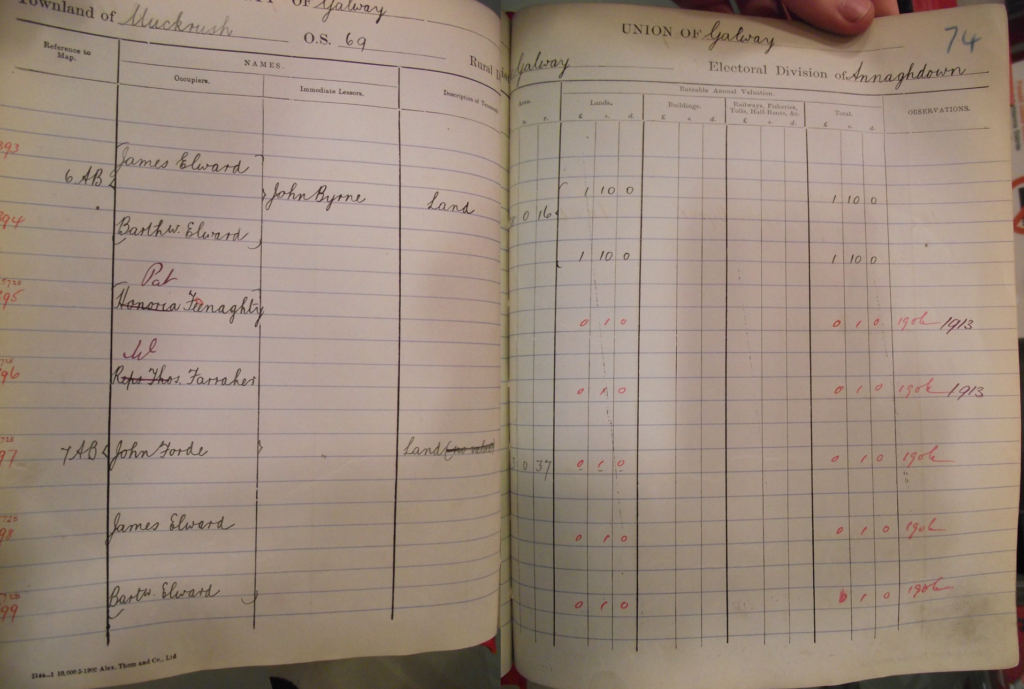 OF Galway
Townland of Muckrush O.S. 69
Rural
Reference to Map.
NAMES.
Occupiers.
Immediate Lessors.
Description of
393
James Elward
6 AB
John Byrne
Land
394
Barthw. Elward
Pat
395
Honoria Feenaghty
W
96
Reps Thos. Farraher
97
7 AB John Forde
Land (no value)
98
James Elward
99
Bartw. Elward
2144—I 10,000.5-1902 Alex. Thom and Co., Ltd
UNION OF Galway 74
Galway Electoral Division of Annaghdown
Area.
Rateable Annual Valuation.
OBSERVATIONS.
Lands.
Buildings.
Railways, Fisheries, Tolls, Half-Rents, &c.
Total.
R. P. £ s. d. £ s. d. £ s. d. £ s. d.
1 10 0 1 10 0
0 16
1 10 0 1 10 0
0 1 0 0 1 0 1906 1913
0 1 0 0 1 0 1906 1913
0 37 0 1 0 0 1 0 1906
0 1 0 0 1 0 1906
0 1 0 0 1 0 1906